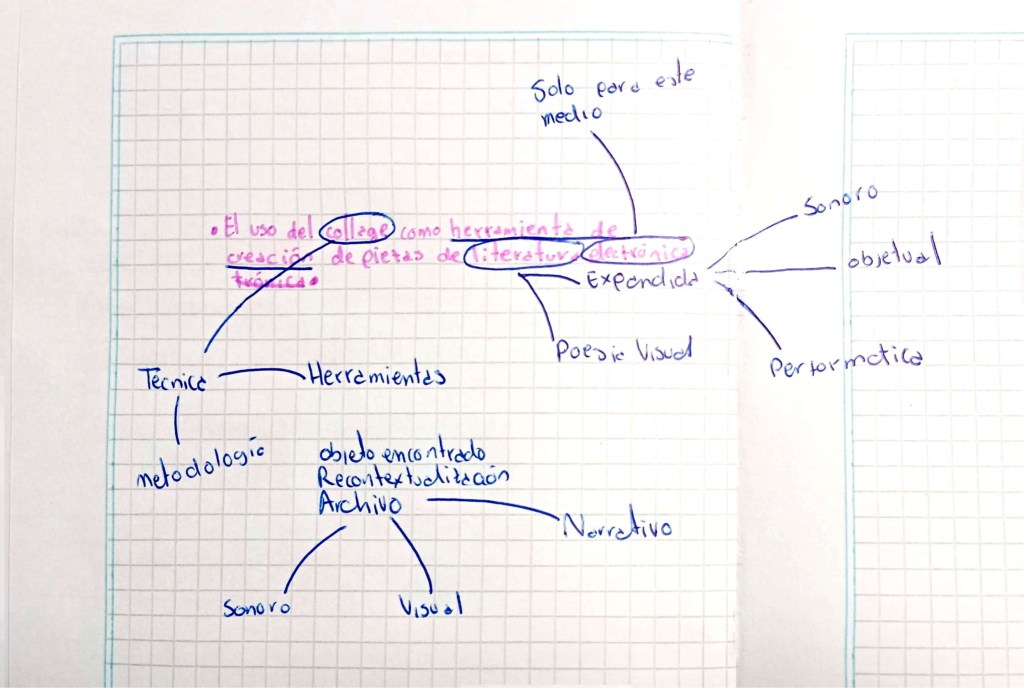 Solo para este
medio
Sonoro
• El uso del collage como herramienta de
creación de piezas de literatura electrónica
trónica •
objetual
Expandida
Poesia Visual
Performatica
Técnica
Herramientas
metodologia
objeto encontrado
Recontextualización
Archivo
Narrativo
Sonoro
Visual